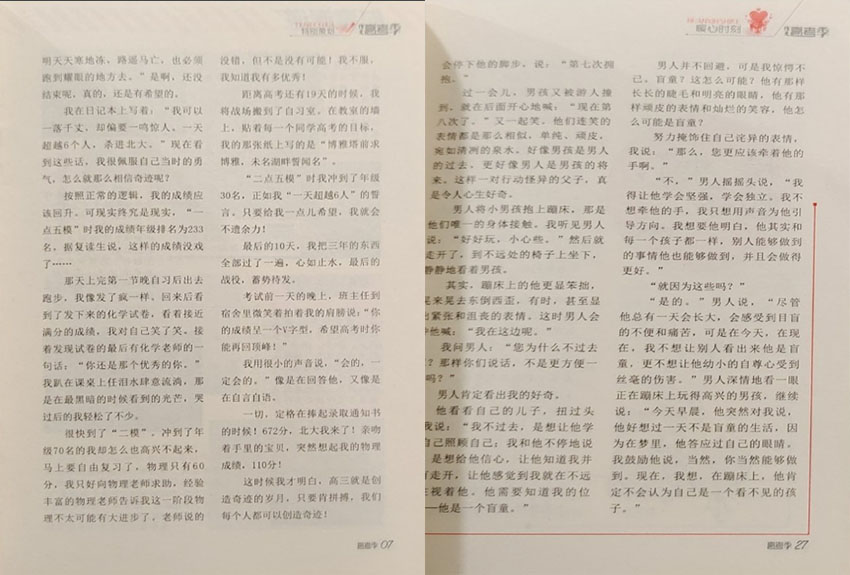 特别策划
高考季
明天天寒地冻，路遥马亡，也必须
跑到耀眼的地方去。”是啊，还没
结束呢，真的，还是有希望的。
我在日记本上写着：“我可以
一落千丈，却偏要一鸣惊人。一天
超越6个人，杀进北大。”现在看
到这些话，我很佩服自己当时的勇
气，怎么就那么相信奇迹呢？
按照正常的逻辑，我的成绩应
该回升。可现实终究是现实，“一
点五模”时我的成绩年级排名为233
名。据复读生说，这样的成绩没戏
了……
那天上完第一节晚自习后出去
跑步，我像发了疯一样。回来后看
到了发下来的化学试卷，看着接近
满分的成绩，我对自己笑了笑。接
着发现试卷的最后有化学老师的一
句话：“你还是那个优秀的你。”
我趴在课桌上任泪水肆意流淌，那
是在最黑暗的时候看到的光芒，哭
过后的我轻松了不少。
很快到了“二模”。冲到了年
级70名的我却怎么也高兴不起来，
马上要自由复习了，物理只有60
分，我只好向物理老师求助，经验
丰富的物理老师告诉我这一阶段物
理不太可能有大进步了。老师说的
没错，但不是没有可能！我不服，
我知道我有多优秀！
距离高考还有19天的时候，我
将战场搬到了自习室。在教室的墙
上，贴着每一个同学高考的目标，
我的那张纸上写的是“博雅塔前求
博雅，未名湖畔誓闻名”。
“二点五模”时我冲到了年级
30名，正如我“一天超越6人”的誓
言。只要给我一点儿希望，我就会
不遗余力！
最后的10天，我把三年的东西
全部过了一遍，心如止水，最后的
战役，蓄势待发。
考试前一天的晚上，班主任到
宿舍里微笑着拍着我的肩膀说：“你
的成绩呈一个V字型，希望高考时你
能再回顶峰！”
我用很小的声音说，“会的，一
定会的。”像是在回答他，又像是
在自言自语。
一切，定格在捧起录取通知书
的时候！672分，北大我来了！亲吻
着手里的宝贝，突然想起我的物理
成绩，110分！
这时候我才明白，高三就是创
造奇迹的岁月，只要肯拼搏，我们
每个人都可以创造奇迹！
高考季 07
暖心时刻
高考季
会停下他的脚步，说：“第七次拥
抱。”
过一会儿，男孩又被游人撞
到，就在后面开心地喊：“现在第
八次了。”又一起笑。他们连笑的
表情都是那么相似，单纯、顽皮，
宛如清冽的泉水。好像男孩是男人
的过去，更好像男人是男孩的将
来。这样一对行动怪异的父子，真
是令人心生好奇。
男人将小男孩抱上蹦床，那是
他们唯一的身体接触。我听见男人
说：“好好玩，小心些。”然后就
走开了，到不远处的椅子上坐下，
静静地看着男孩。
其实，蹦床上的他更显笨拙，
晃来晃去东倒西歪，有时，甚至显
出紧张和沮丧的表情。这时男人会
冲他喊：“我在这边呢。”
我问男人：“您为什么不过去
？那样你们说话，不是更方便一
吗？”
男人肯定看出我的好奇。
他看看自己的儿子，扭过头
说：“我不过去，是想让他学
自己照顾自己；我和他不停地说
是想给他信心，让他知道我并
有走开，让他感觉到我就在不远
注视着他。他需要知道我的位
—他是一个盲童。”
男人并不回避，可是我惊愕不
已。盲童？这怎么可能？他有那样
长长的睫毛和明亮的眼睛，他有那
样顽皮的表情和灿烂的笑容，他怎
么可能是盲童？
努力掩饰住自己诧异的表情，
我说：“那么，您更应该牵着他的
手啊。”
“不，”男人摇摇头说，“我
得让他学会坚强，学会独立。我不
想牵他的手，我只想用声音为他引
导方向。我想要他明白，他其实和
每一个孩子都一样，别人能够做到
的事情他也能够做到，并且会做得
更好。”
“就因为这些吗？”
“是的。”男人说，“尽管
他总有一天会长大，会感受到目盲
的不便和痛苦，可是在今天，在现
在，我不想让别人看出来他是盲
童，更不想让他幼小的自尊心受到
丝毫的伤害。”男人深情地看一眼
正在蹦床上玩得高兴的男孩，继续
说：“今天早晨，他突然对我说，
他好想过一天不是盲童的生活，因
为在梦里，他答应过自己的眼睛。
我鼓励他说，当然，你当然能够做
到。现在，我想，在蹦床上，他肯
定不会认为自己是一个看不见的孩
子。”
高考季 27